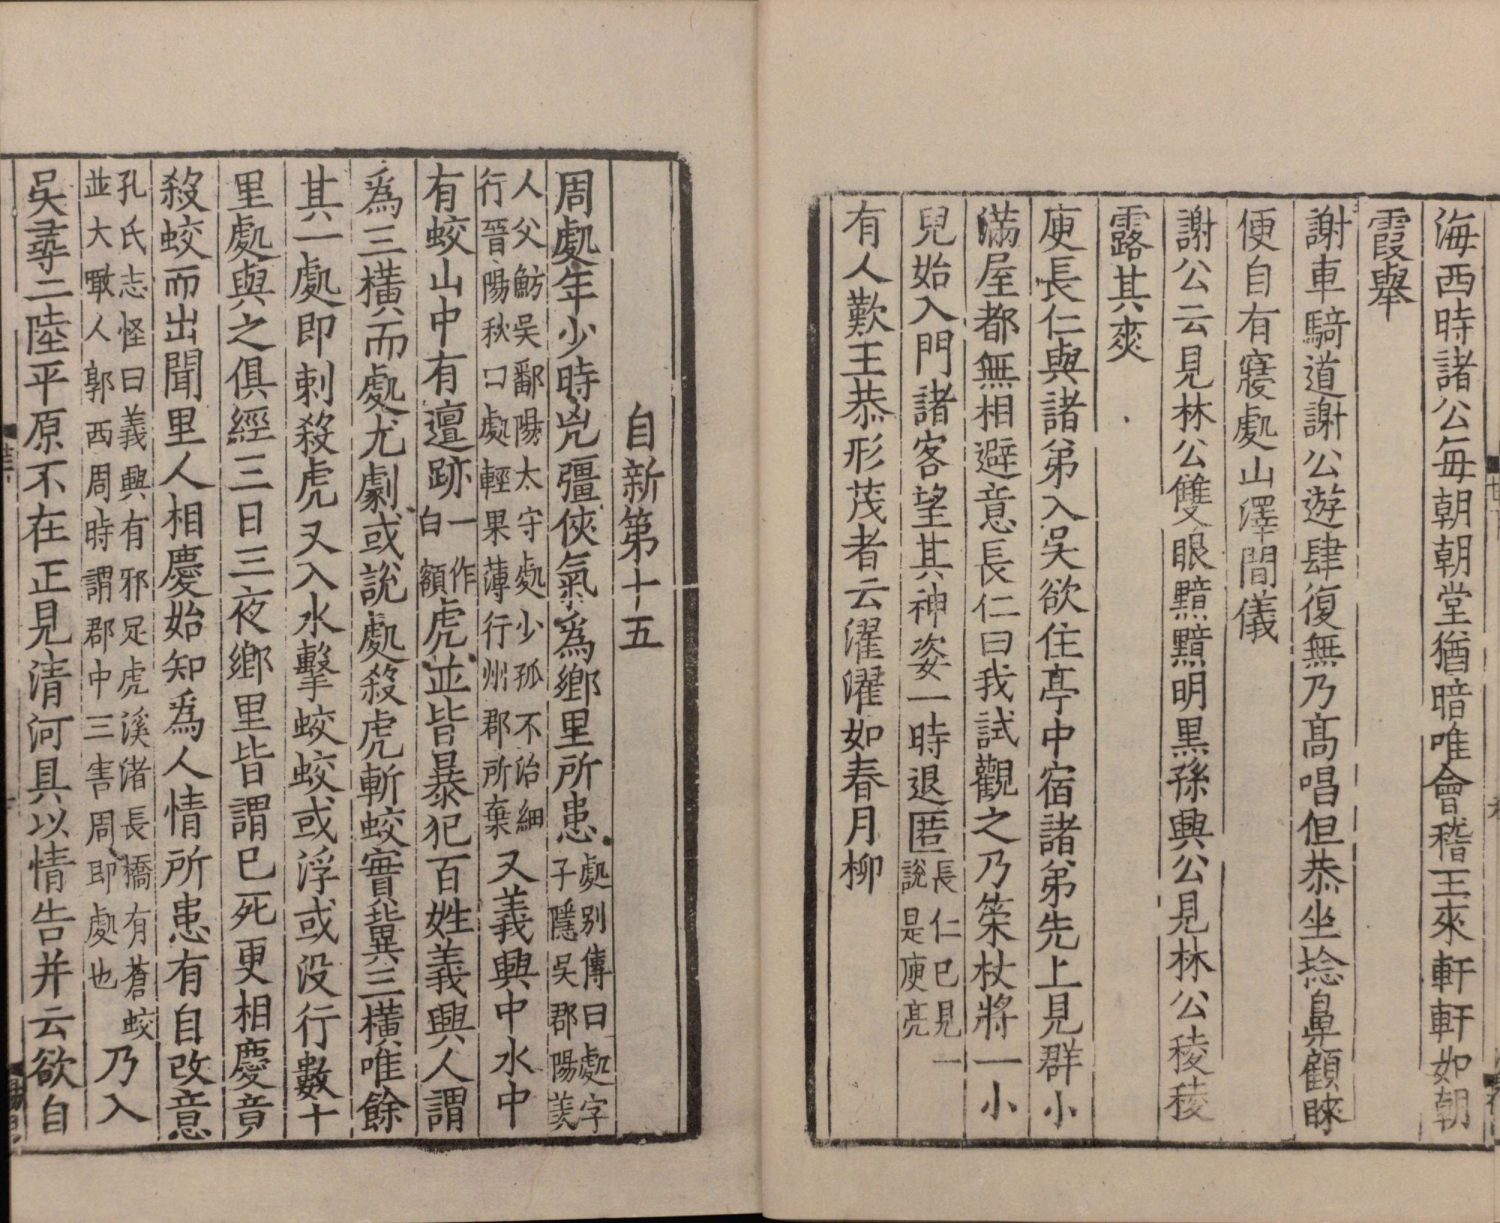 海西時諸公每朝朝堂猶暗唯會稽王來軒軒如朝
霞舉
謝車騎道謝公遊肆復無乃高唱但恭坐捻鼻顧睞
便自有寢處山澤間儀
謝公云見林公雙眼黯黯明黑孫興公見林公稜稜
露其爽
庾長仁與諸弟入吳欲住亭中宿諸弟先上見群小
滿屋都無相避意長仁曰我試觀之乃策杖將一小
兒始入門諸客望其神姿一時退匿長仁已見一說是庾亮
有人歎王恭形茂者云濯濯如春月柳
自新第十五
周處年少時兇彊俠氣爲鄉里所患處別傳曰處字子隱吳郡陽羡
人父魴吳鄱陽太守處少孤不治細行晉陽秋曰處輕果薄行州郡所棄又義興中水中
有蛟山中有邅跡一作白額虎並皆暴犯百姓義興人謂
爲三橫而處尤劇或說處殺虎斬蛟實冀三橫唯餘
其一處即刺殺虎又入水擊蛟蛟或浮或没行數十
里處與之俱經三日三夜鄉里皆謂已死更相慶竟
殺蛟而出聞里人相慶始知爲人情所患有自改意
孔氏志怪曰義興有邪足虎溪渚長橋有蒼蛟並大噉人郭西周時謂郡中三害周即處也乃入
吳尋二陸平原不在正見清河具以情告并云欲自